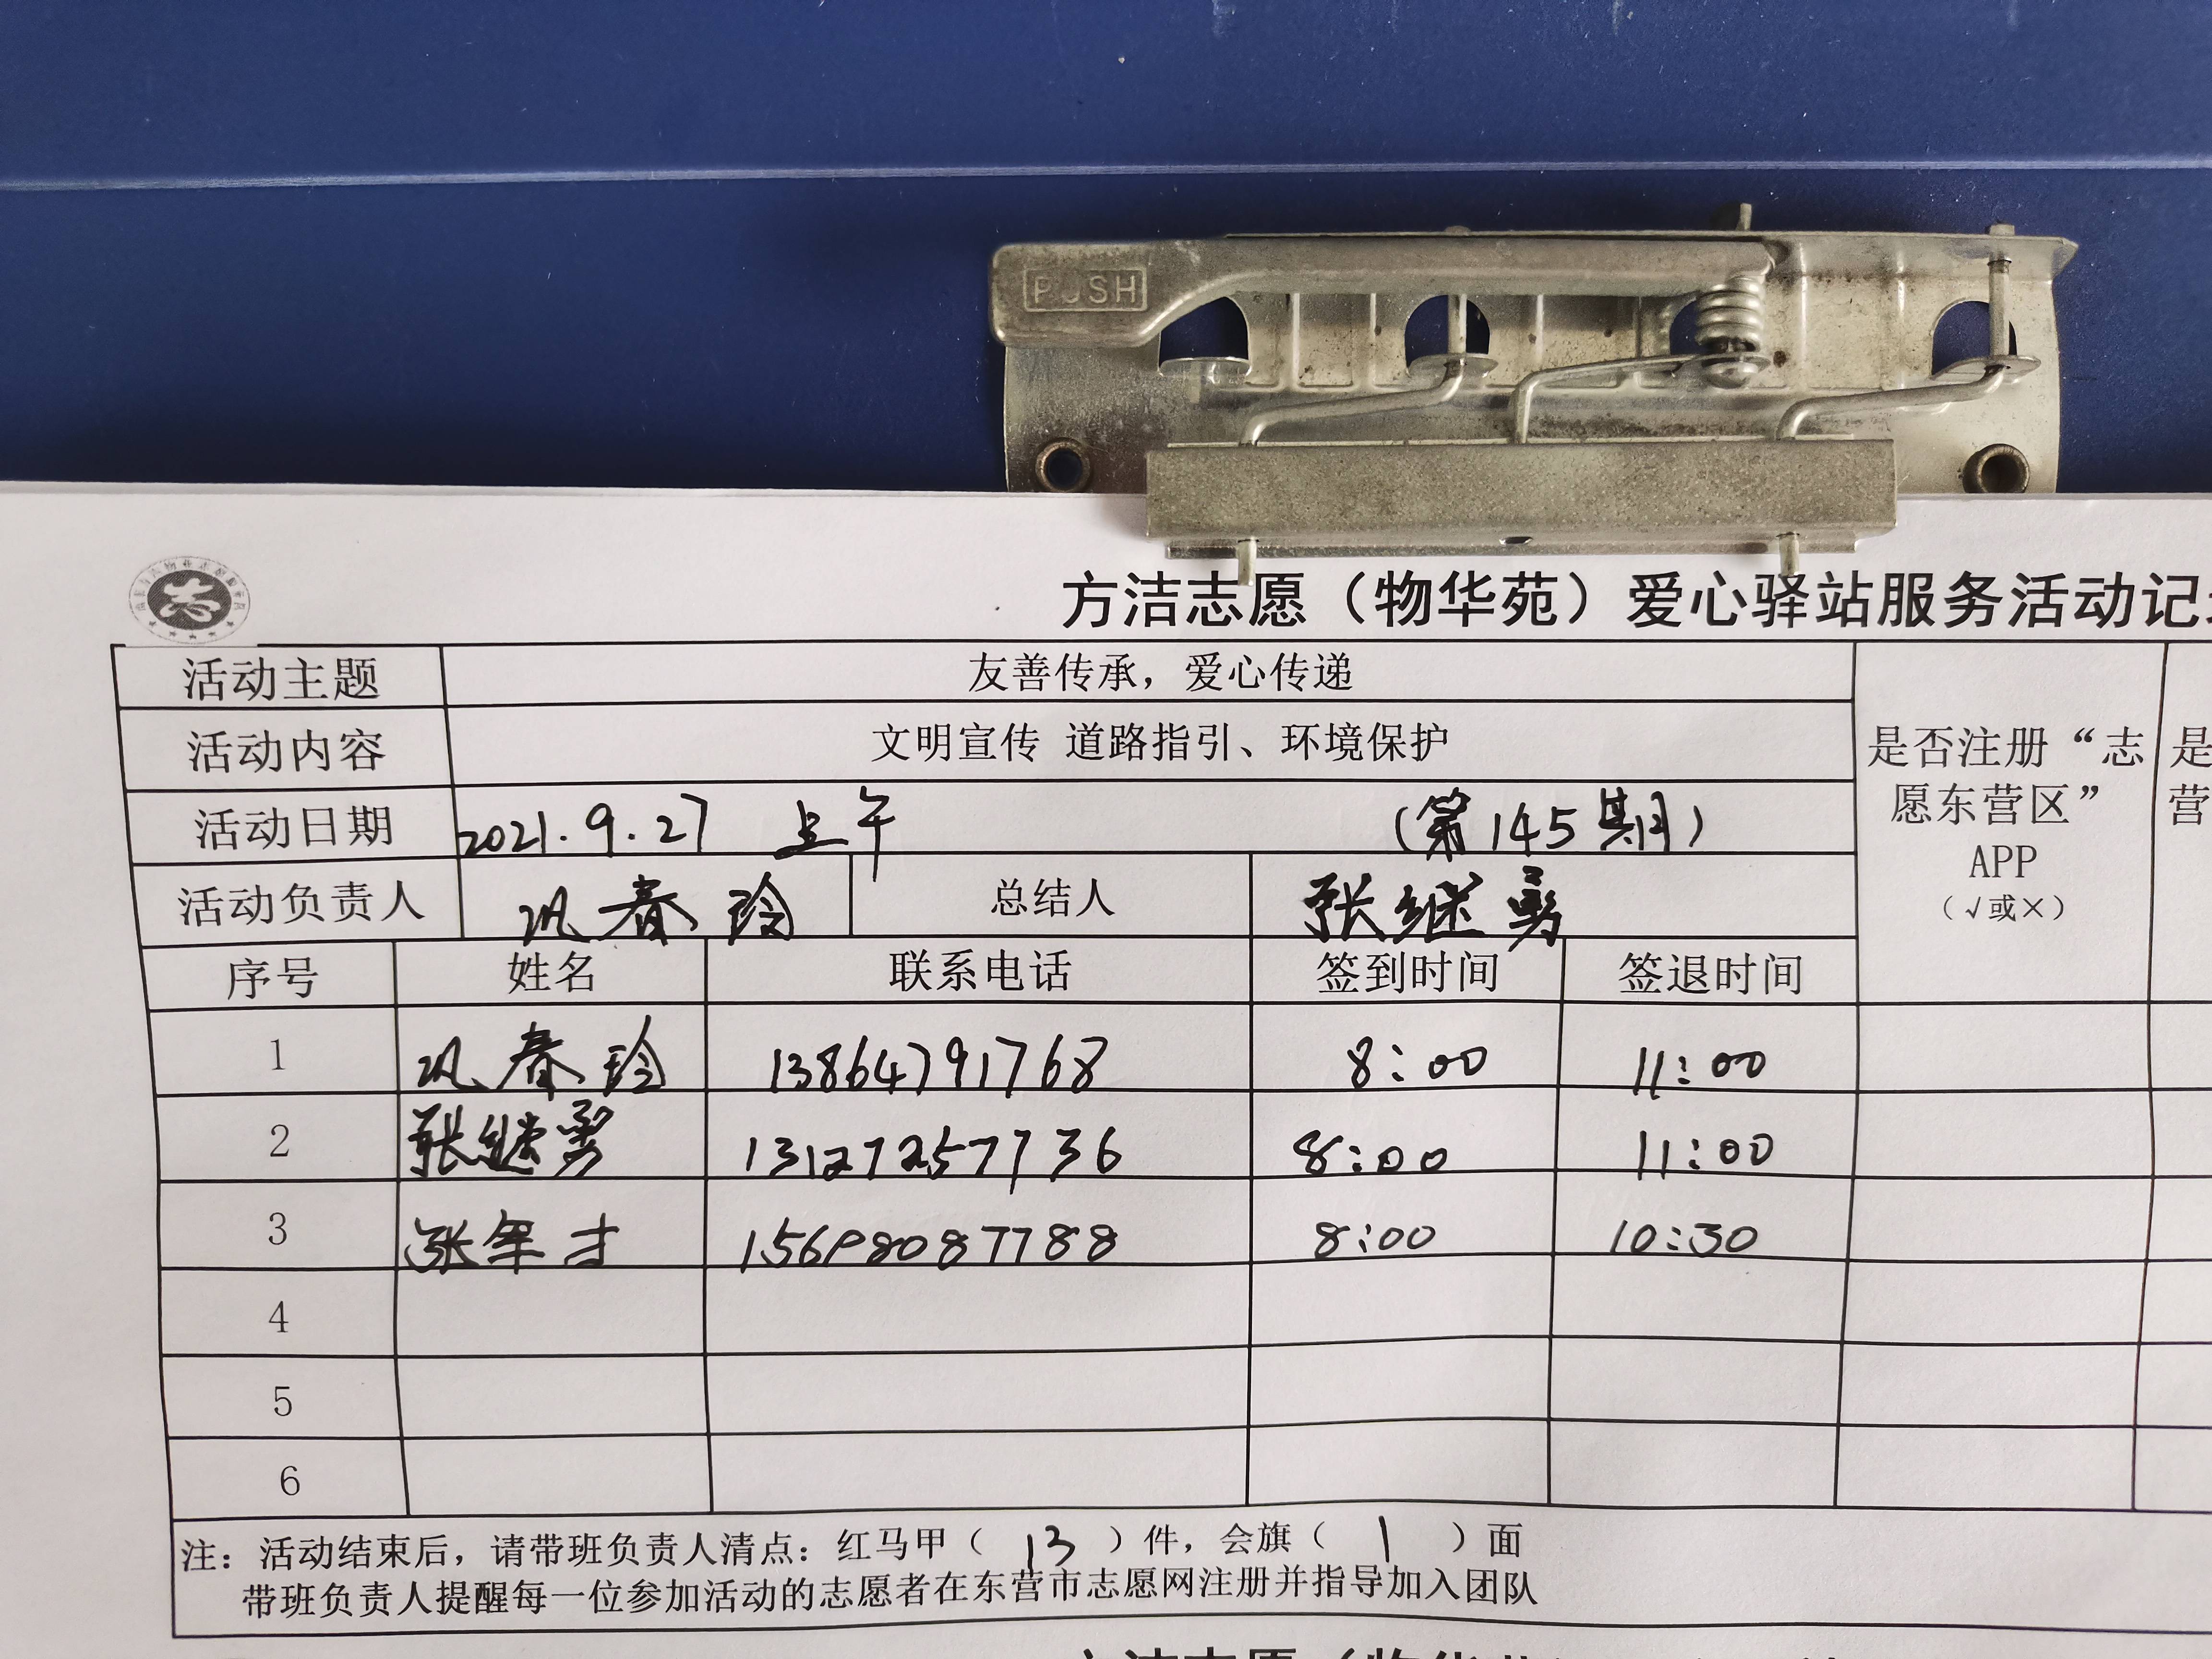 PUSH
方洁志愿（物华苑）爱心驿站服务活动记
活动主题 友善传承，爱心传递
活动内容 文明宣传 道路指引、环境保护
是否注册“志愿东营区”APP（√或×）
是
营
活动日期 2021.9.27 上午 （第145期）
活动负责人 巩春玲 总结人 张继勇
序号 姓名 联系电话 签到时间 签退时间
1 巩春玲 13864791768 8:00 11:00
2 张继勇 13127257736 8:00 11:00
3 张军才 15698087788 8:00 10:30
4
5
6
注：活动结束后，请带班负责人清点：红马甲（ 13 ）件，会旗（ 1 ）面
带班负责人提醒每一位参加活动的志愿者在东营市志愿网注册并指导加入团队